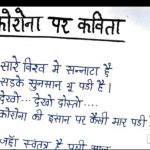 कोरोना पर कविता
सारे विश्व मे सन्नाटा है
सड़के सुनसान भू पडी है।
देखो... देखो दोस्तो....
कोरोना की इसान पर कैसी मार पडी है
जहाँ स्वतन्त्र है पक्षी आज